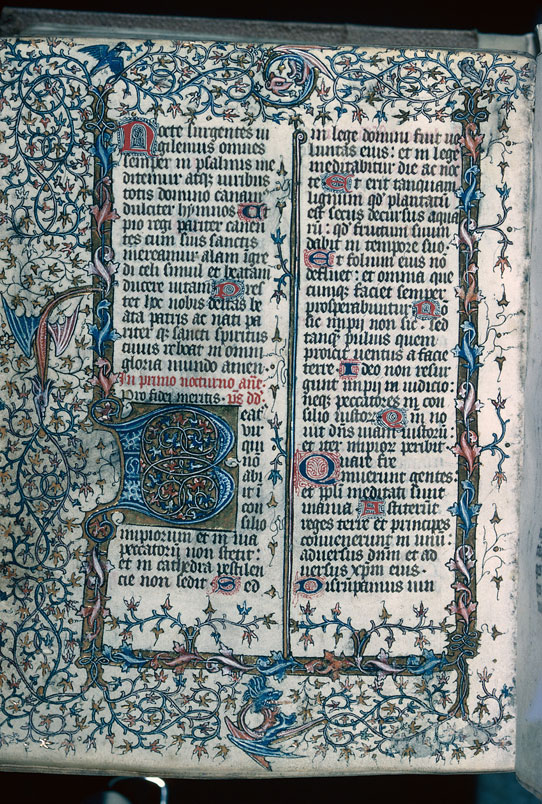 Nocte surgentes ui
gilemus omnes
semper in psalmis me
ditemur atq̄ uiribus
totis domino canamꝰ
dulciter hymnos Ut
pio regi pariter canē
tes cum suis sanctis
mereamur aulam ĩgre
di celi simul et beatam
ducere uitam Pres
tet hoc nobis deitas be
ata patris ac nati pa
riter q̄ sancti spiritus
cuius reboat in omni
gloria mundo amen.
In primo nocturno añe
pro fidei meritis. p̄s dd̄
Beat
vir
qui
nō
abi
it ī
con
silio
impiorum et in uia
peccatorū non stetit:
et in cathedra pestilen
cie non sedit Sed
in lege domini fuit uo
luntas eius: et in lege
meditabitur die ac noc
te Et erit tanquam
lignum qd̄ plantatū
est secus decursus aqua
rū: qd̄ fructum suum
dabit in tempore suo.
Et folium eius nō
defluet: et omnia que
cunq̄ faciet semper
prosperabuntur Nō
sic impij non sic sed
tanq̄ puluis quem
proicit uentus a facie
terre Ideo non resur
gunt impij in iudicio:
neq̄ peccatores in con
silio iustoꝝ Qm̄ no
uit dn̄s uiam iustorū
et iter impioꝝ peribit.
Quare fre
muerunt gentes:
et ppl̄i meditati sunt
inania Astiterūt
reges terre et principes
conuenerunt in unū:
aduersus dn̄m et ad
uersus xpm̄ eius.
Disrūpamus uin